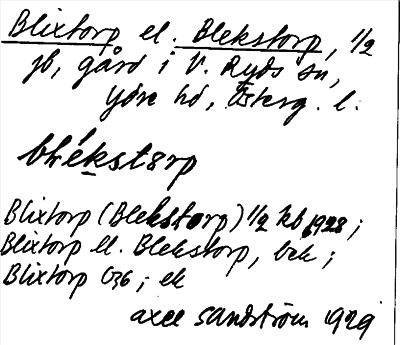 Blixtorp el. Blekstorp, 1/2
jb, gård i V. Ryds sn,
Ydre hd, Österg. l.
blékstɔrp
Blixtorp (Blekstorp) 1/2 kb 1928;
Blixtorp el. Blekstorp, bek;
Blixtorp G36; ek
Axel Sandström 1929